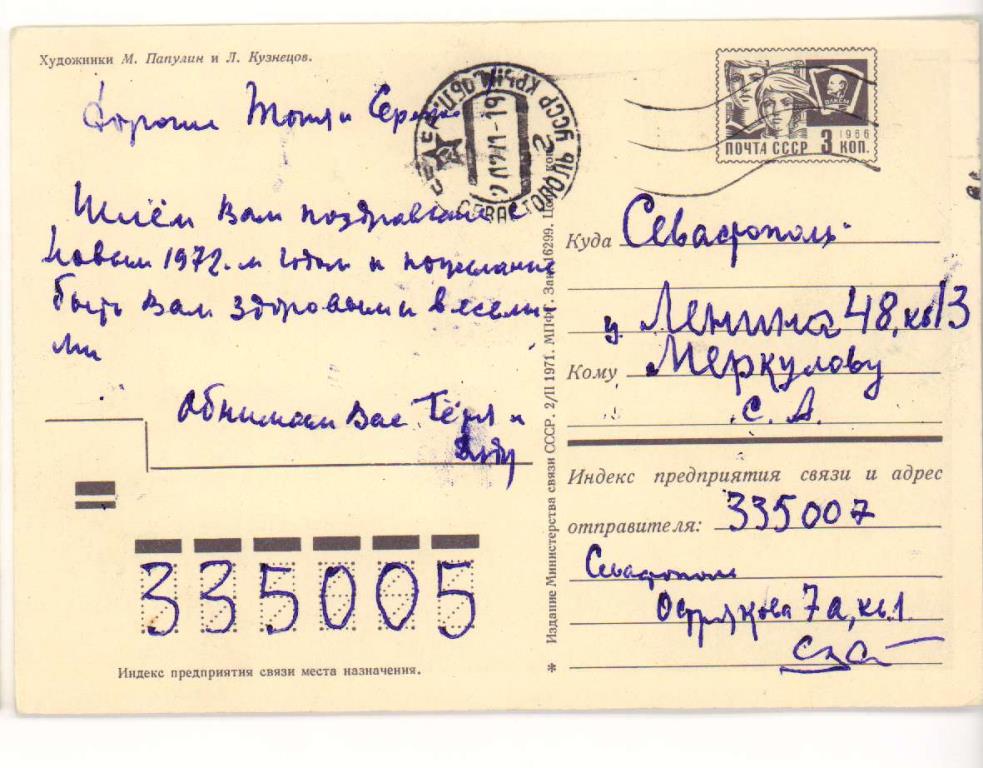 Художники М. Папулин и Л. Кузнецов.
Дорогие Тоня и Серёжа
Шлём Вам поздравление с
Новым 1972.м годом и пожелание
быть Вам здоровыми и весёлы-
ми
Обнимаем Вас Тётя и
Индекс предприятия связи места назначения.
335005
СЕВАСТОПОЛЬ УССР КРЫМ. ОБЛ.
ПОЧТА СССР 3 КОП.
1966
ВЛКСМ
Издание Министерства связи СССР. 2/II 1971. МПФГ. Зак. 16299. Цена коп.
Куда Севастополь
у. Ленина 48, кв 13
Кому Меркулову
С. А.
Индекс предприятия связи и адрес
отправителя: 335007
Севастополь
Острякова 7а, кв. 1.